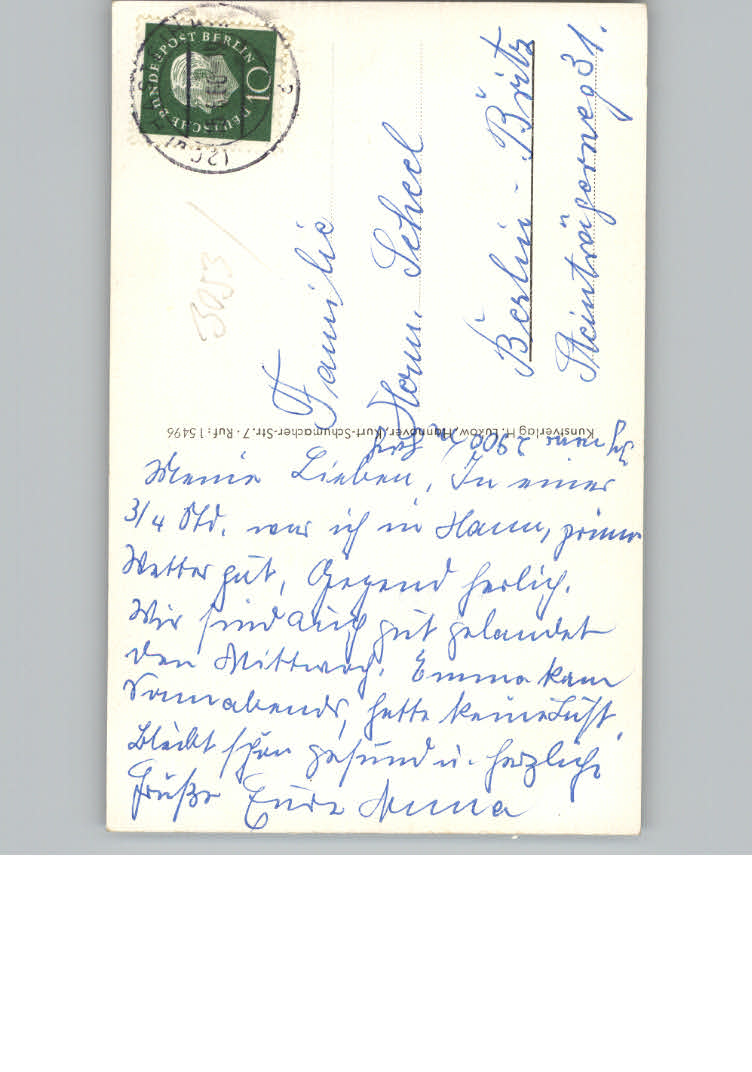 Meine Lieben, In einer
3/4 Std. war ich in Hann, prima
Wetter gut, Gegend herlich.
Wir sind auch gut gelandet
den Mittwoch. Emma kam
Sonnabends, hatte keine Lust.
Bleibt schön gesund u. herzliche
Grüße Eure Anna
2900
Kunstverlag H. Lukow, Hannover, Kurt-Schumacher-Str. 7 · Ruf: 15496
Familie
Herm. Scheel
Berlin-Britz
Steinträgerweg 31.
DEUTSCHE BUNDESPOST BERLIN
10
3053